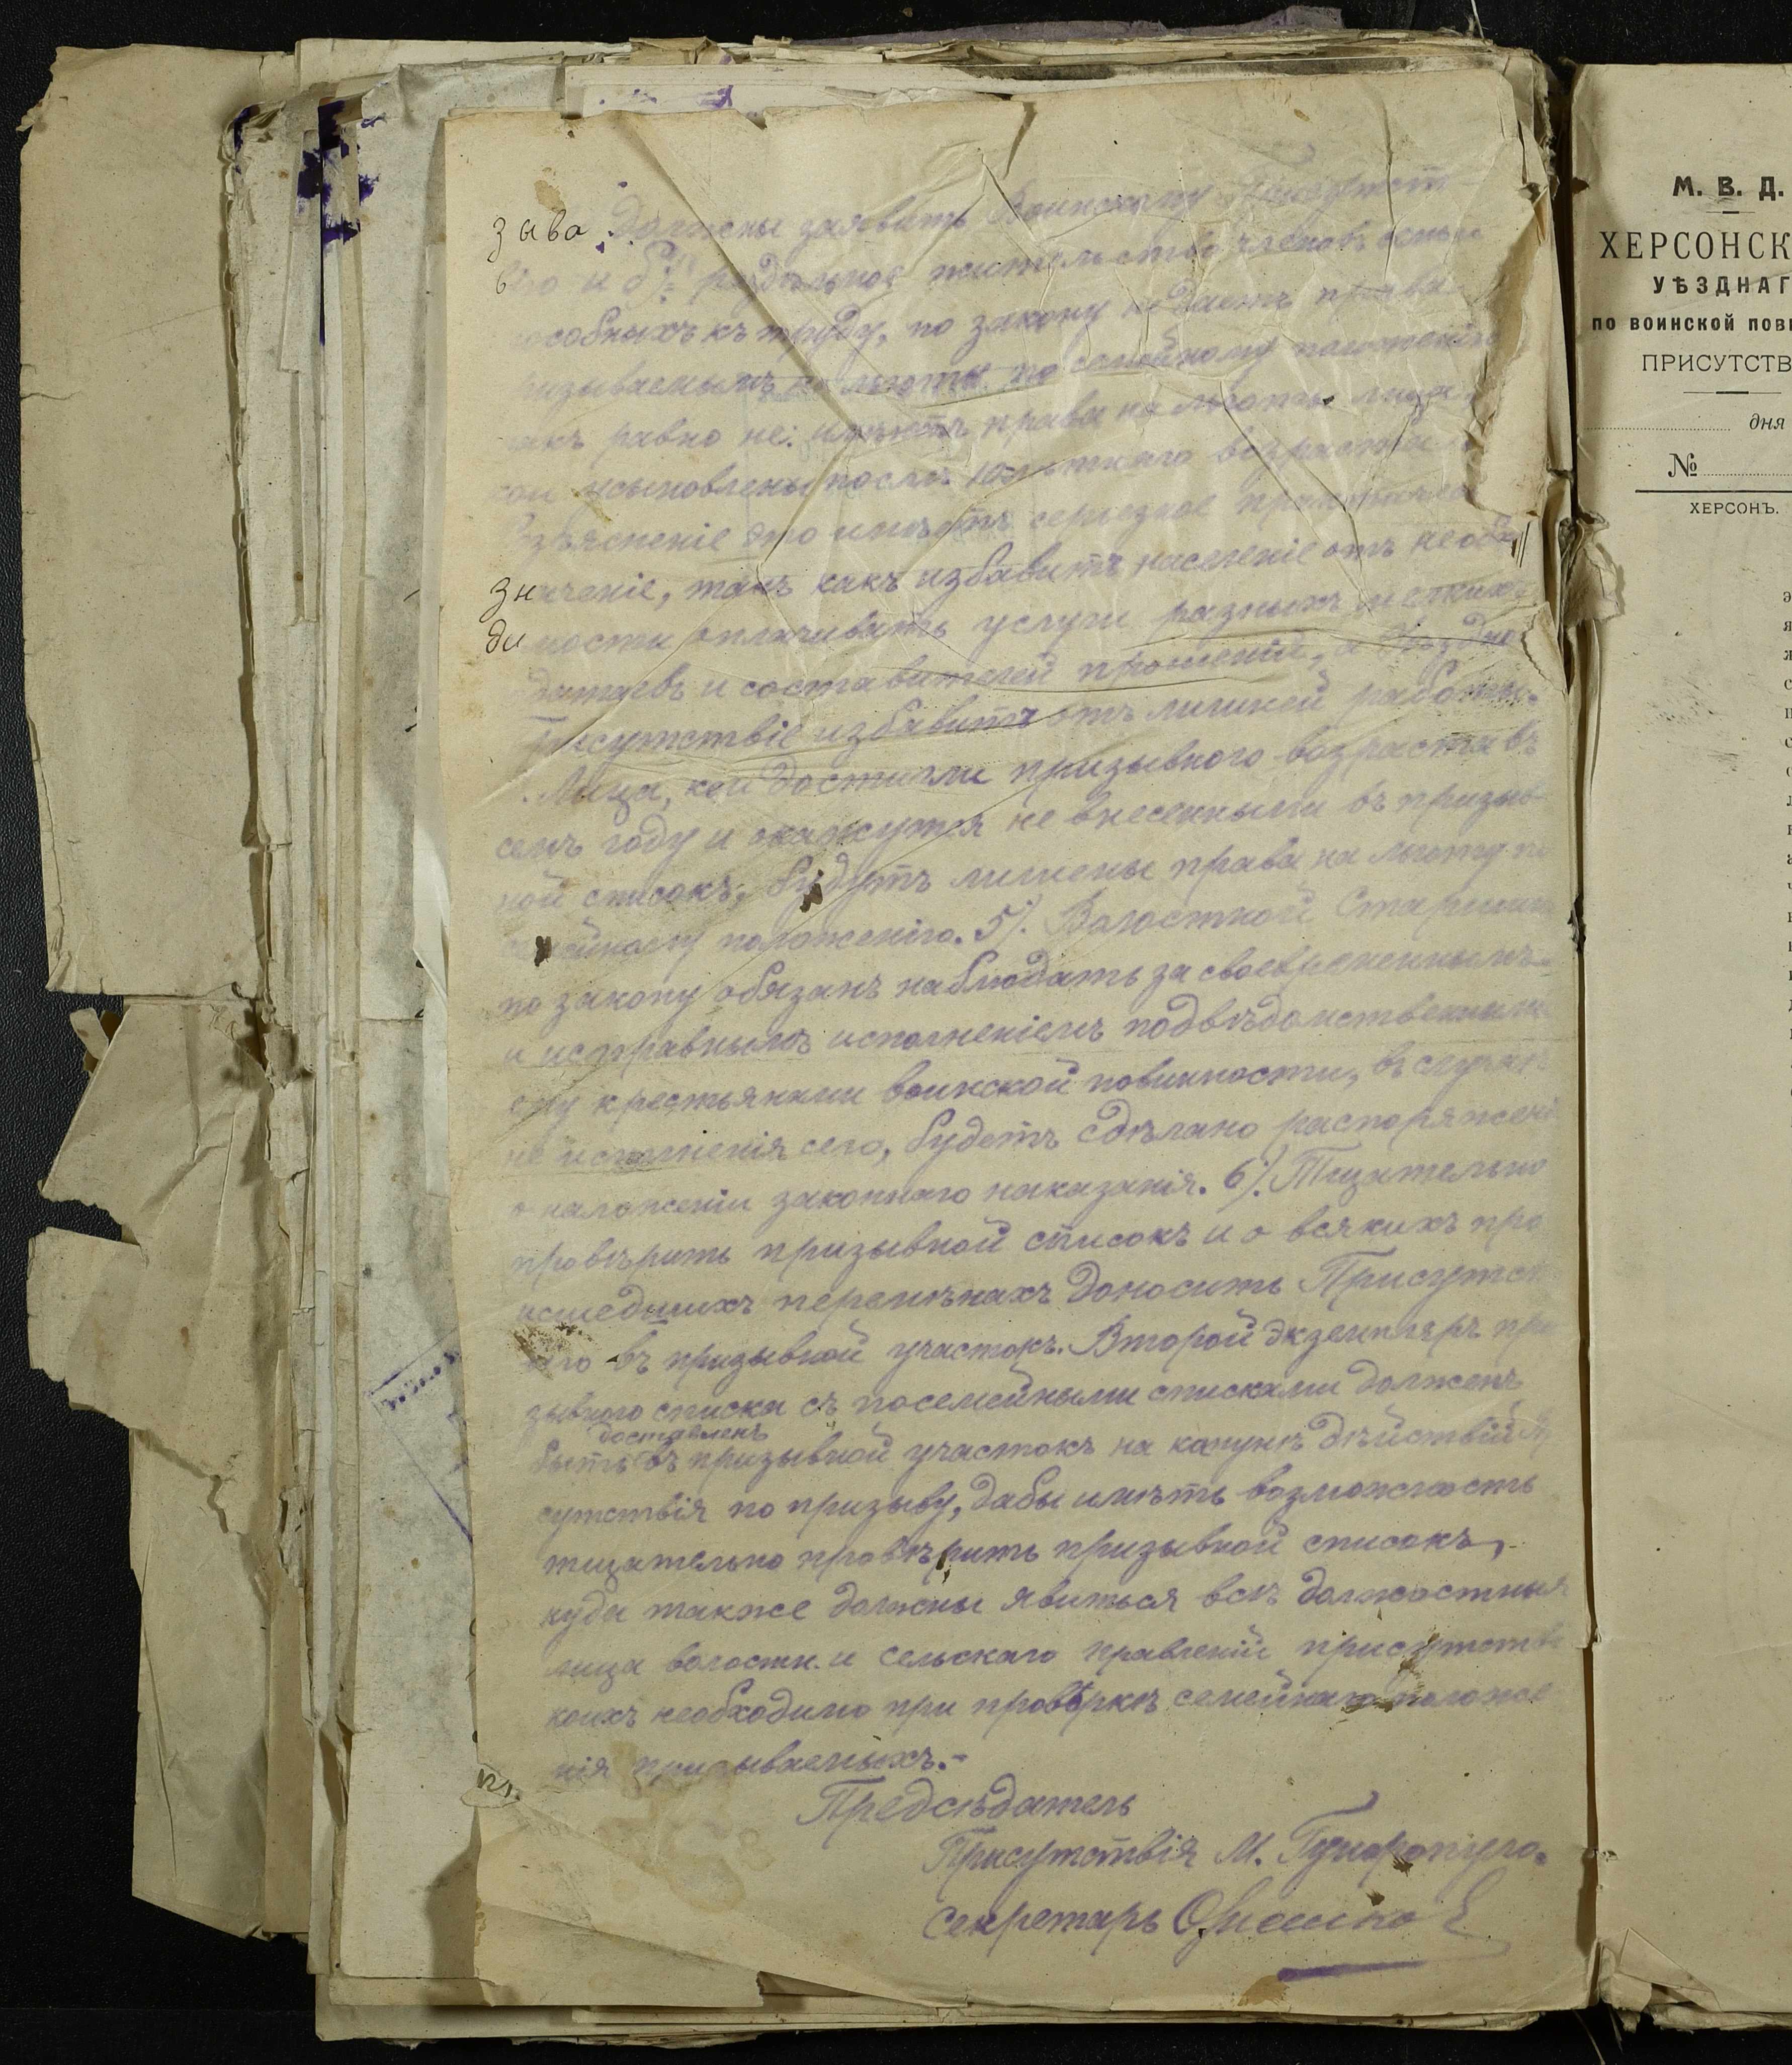 зыва должны заявить Воинскому Присутст
вію и б/. раздѣльное жительство членовъ семьи
особныхъ къ труду, по закону не даетъ права
ризываемымъ на льготы по семейному положенію
акъ равно не имѣютъ права на льготы лица,
кои усыновлены послѣ 10лѣтняго возраста
Разъясненіе это имѣетъ серьезное практическ
значеніе, такъ какъ избавитъ населеніе отъ необх
димости оплачивать услуги разныхъ
датаевъ и составителей прошеній, а Уѣздное
Присутствіе избавитъ отъ лишней работы.
Лица, кои достигли призывного возраста въ
семъ году и окажутся не внесенными въ призыв
ной списокъ, будутъ лишены права на льготу по
семейному положенію. 5/. Волостной Старшина
по закону обязанъ наблюдать за своевременнымъ
и исправнымъ исполненіемъ подвѣдомственными
ему крестьянами воинской повинности, въ случаѣ
не исполненія сего, будетъ сдѣлано распоряжені
о наложеніи законнаго наказанія. 6/. Тщательно
провѣрить призывной списокъ и о всякихъ про
исшедшихъ перемѣнахъ доносить Присутст
вію въ призывной участокъ. Второй экземпляръ при
зывного списка съ посемейными списками долженъ
быть доставленъ въ призывной участокъ на канунѣ дѣйствій При
сутствія по призыву, дабы имѣть возможность
тщательно провѣрить призывной списокъ,
куда также должны явиться всѣ должностныя
лица волостн. и сельскаго правленій присутств
коихъ необходимо при провѣркѣ семейнаго положе
нія призываемыхъ.-
Предсѣдатель
Присутствія М.
Секретарь
М. В. Д.
ХЕРСОНСК
УѢЗДНАГ
ПО ВОИНСКОЙ ПОВИ
ПРИСУТСТВ
дня
№
ХЕРСОНЪ.